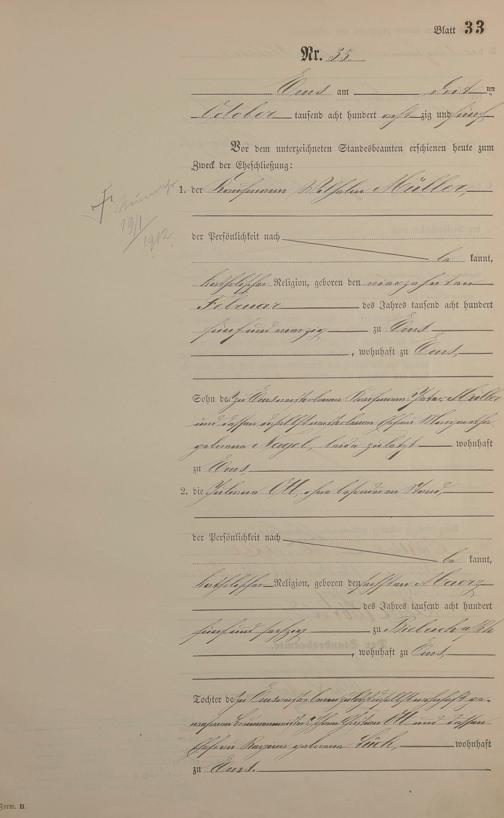 Blatt 33
Nr. 35
Ems am ten
October tausend acht hundert acht zig und fünf
Vor dem unterzeichneten Standesbeamten erschienen heute zum
Zweck der Eheschließung:
1. der Kaufmann Wilhelm Müller,
1912
der Persönlichkeit nach
be kannt,
katholischer Religion, geboren den vierzehnten
Februar des Jahres tausend acht hundert
fünf und vierzig zu Ems
, wohnhaft zu Ems,
Sohn des zu Ems verstorbenen Kaufmanns Peter Müller
und dessen daselbst verstorbenen Ehefrau
geborene Nagel, beide zuletzt wohnhaft
zu Ems
2. die Juliana Ott, ohne besonderen Stand,
der Persönlichkeit nach
be kannt,
katholischer Religion, geboren den Maerz
des Jahres tausend acht hundert
fünf und sechzig zu
, wohnhaft zu Ems,
Tochter des zu Ems verstorbenen, zuletzt daselbst wohnhaft ge-
wesenen Ott und dessen
Ehefrau geborene wohnhaft
zu Ems.
Form. B.